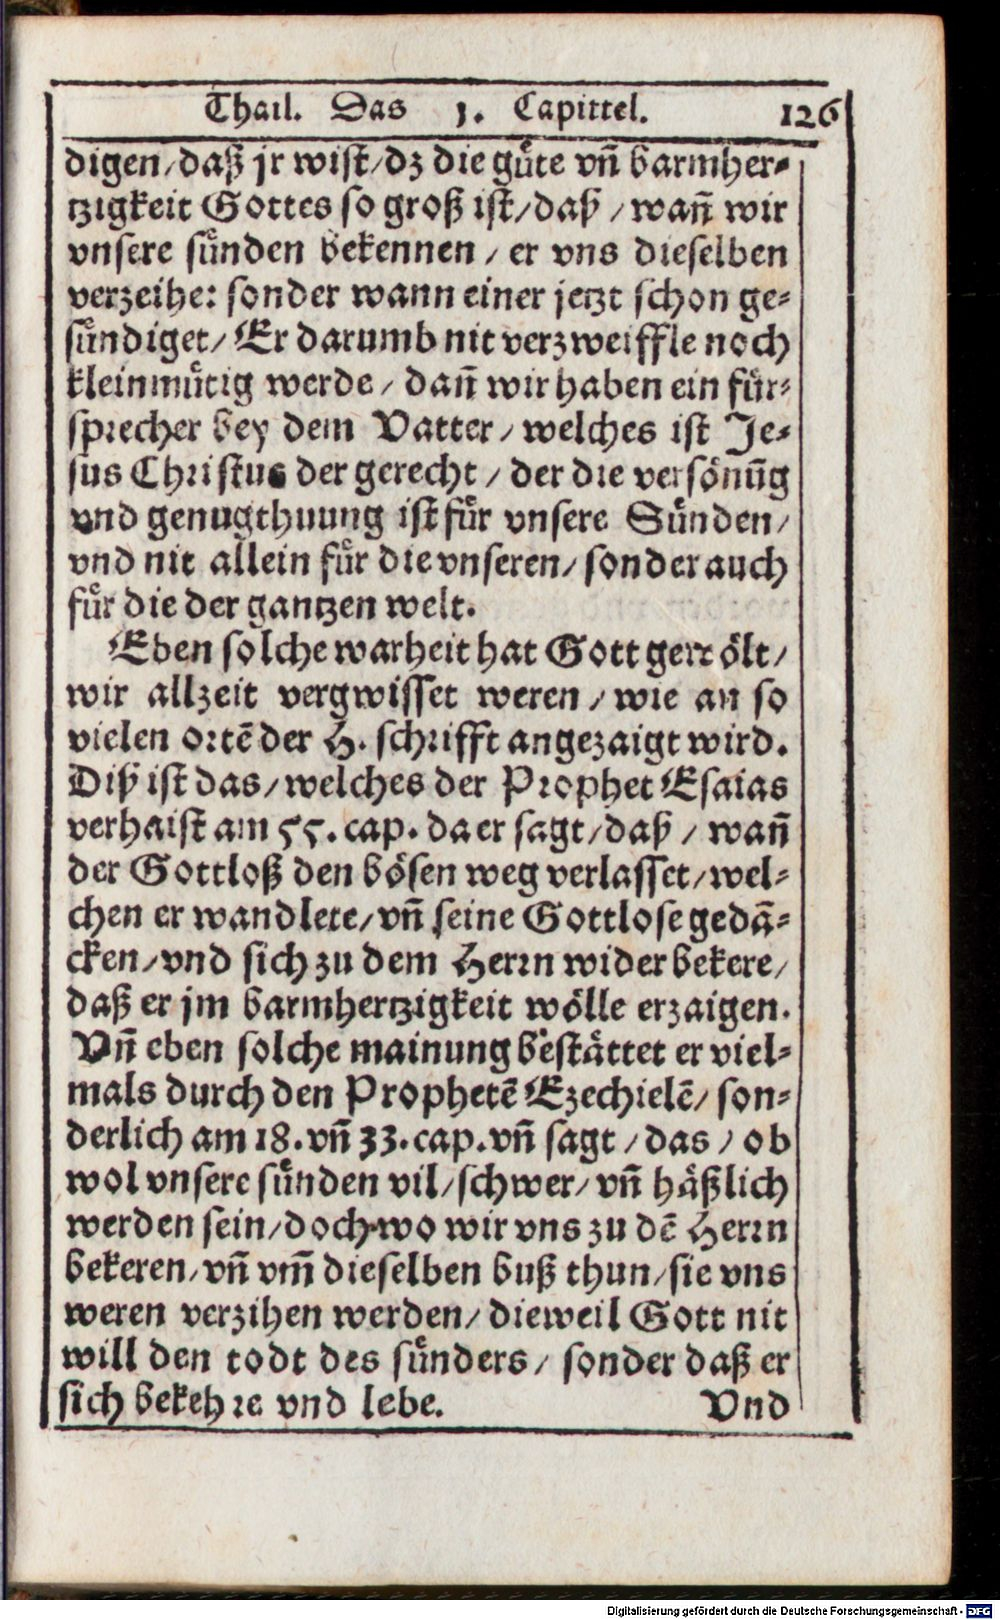 Thail. Das 1. Capittel. 126
digen/daß jr wist/dz die guͤte vñ barmher-
tzigkeit Gottes so groß ist/daß/wañ wir
vnsere suͤnden bekennen/er vns dieselben
verzeihe: sonder wann einer jetzt schon ge-
suͤndiget/Er darumb nit verzweiffle noch
kleinmuͤtig werde/dañ wir haben ein fuͤr-
sprecher bey dem Vatter/welches ist Je-
sus Christus der gerecht/der die versoͤnũg
vnd genugthuung ist fuͤr vnsere Suͤnden/
vnd nit allein fuͤr die vnseren/sonder auch
fuͤr die der gantzen welt.
Eben solche warheit hat Gott
wir allzeit vergwisset weren/wie an so
vielen ortẽ der H. schrifft angezaigt wird.
Diß ist das/welches der Prophet Esaias
verhaist am 55. cap. da er sagt/daß/wañ
der Gottloß den boͤsen weg verlasset/wel-
chen er wandlete/vñ seine Gottlose gedã-
cken/vnd sich zu dem Herrn wider bekere/
daß er jm barmhertzigkeit woͤlle erzaigen.
Vñ eben solche mainung bestaͤttet er viel-
mals durch den Prophetẽ Ezechielẽ/son-
derlich am 18. vñ 33. cap. vñ sagt/das/ob
wol vnsere suͤnden vil/schwer/vñ haͤßlich
werden sein/doch wo wir vns zu dẽ Herrn
bekeren/vñ vm̃ dieselben buß thun/sie vns
weren verzihen werden/dieweil Gott nit
will den todt des suͤnders/sonder daß er
sich bekehre vnd lebe. Vnd
Digitalisierung gefördert durch die Deutsche Forschungsgemeinschaft - DFG